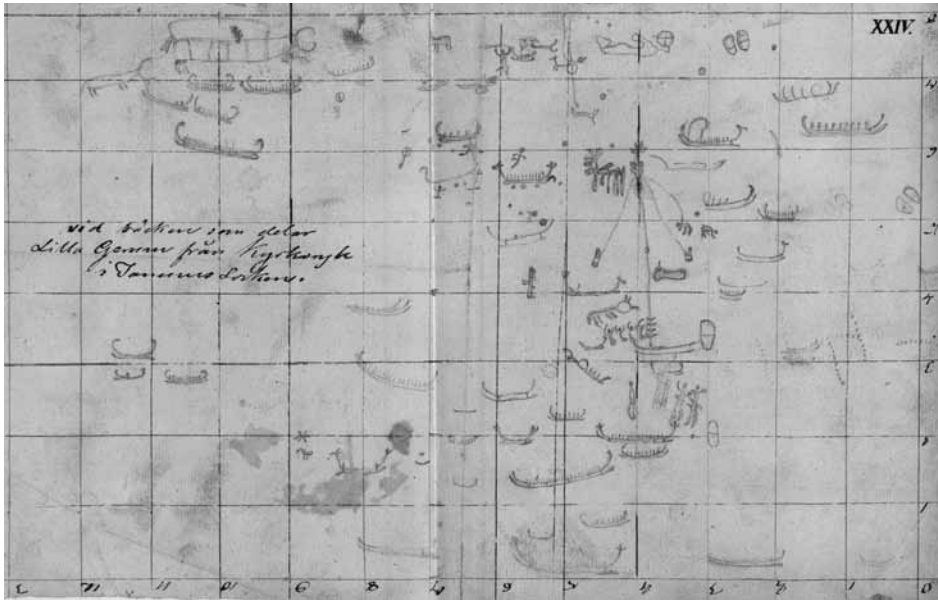 XXIV.
vid bäcken som delar
Lilla Gerum från
i Tanums Socken.
1
12 11 10 9 8 7 6 5 4 3 2 1 0